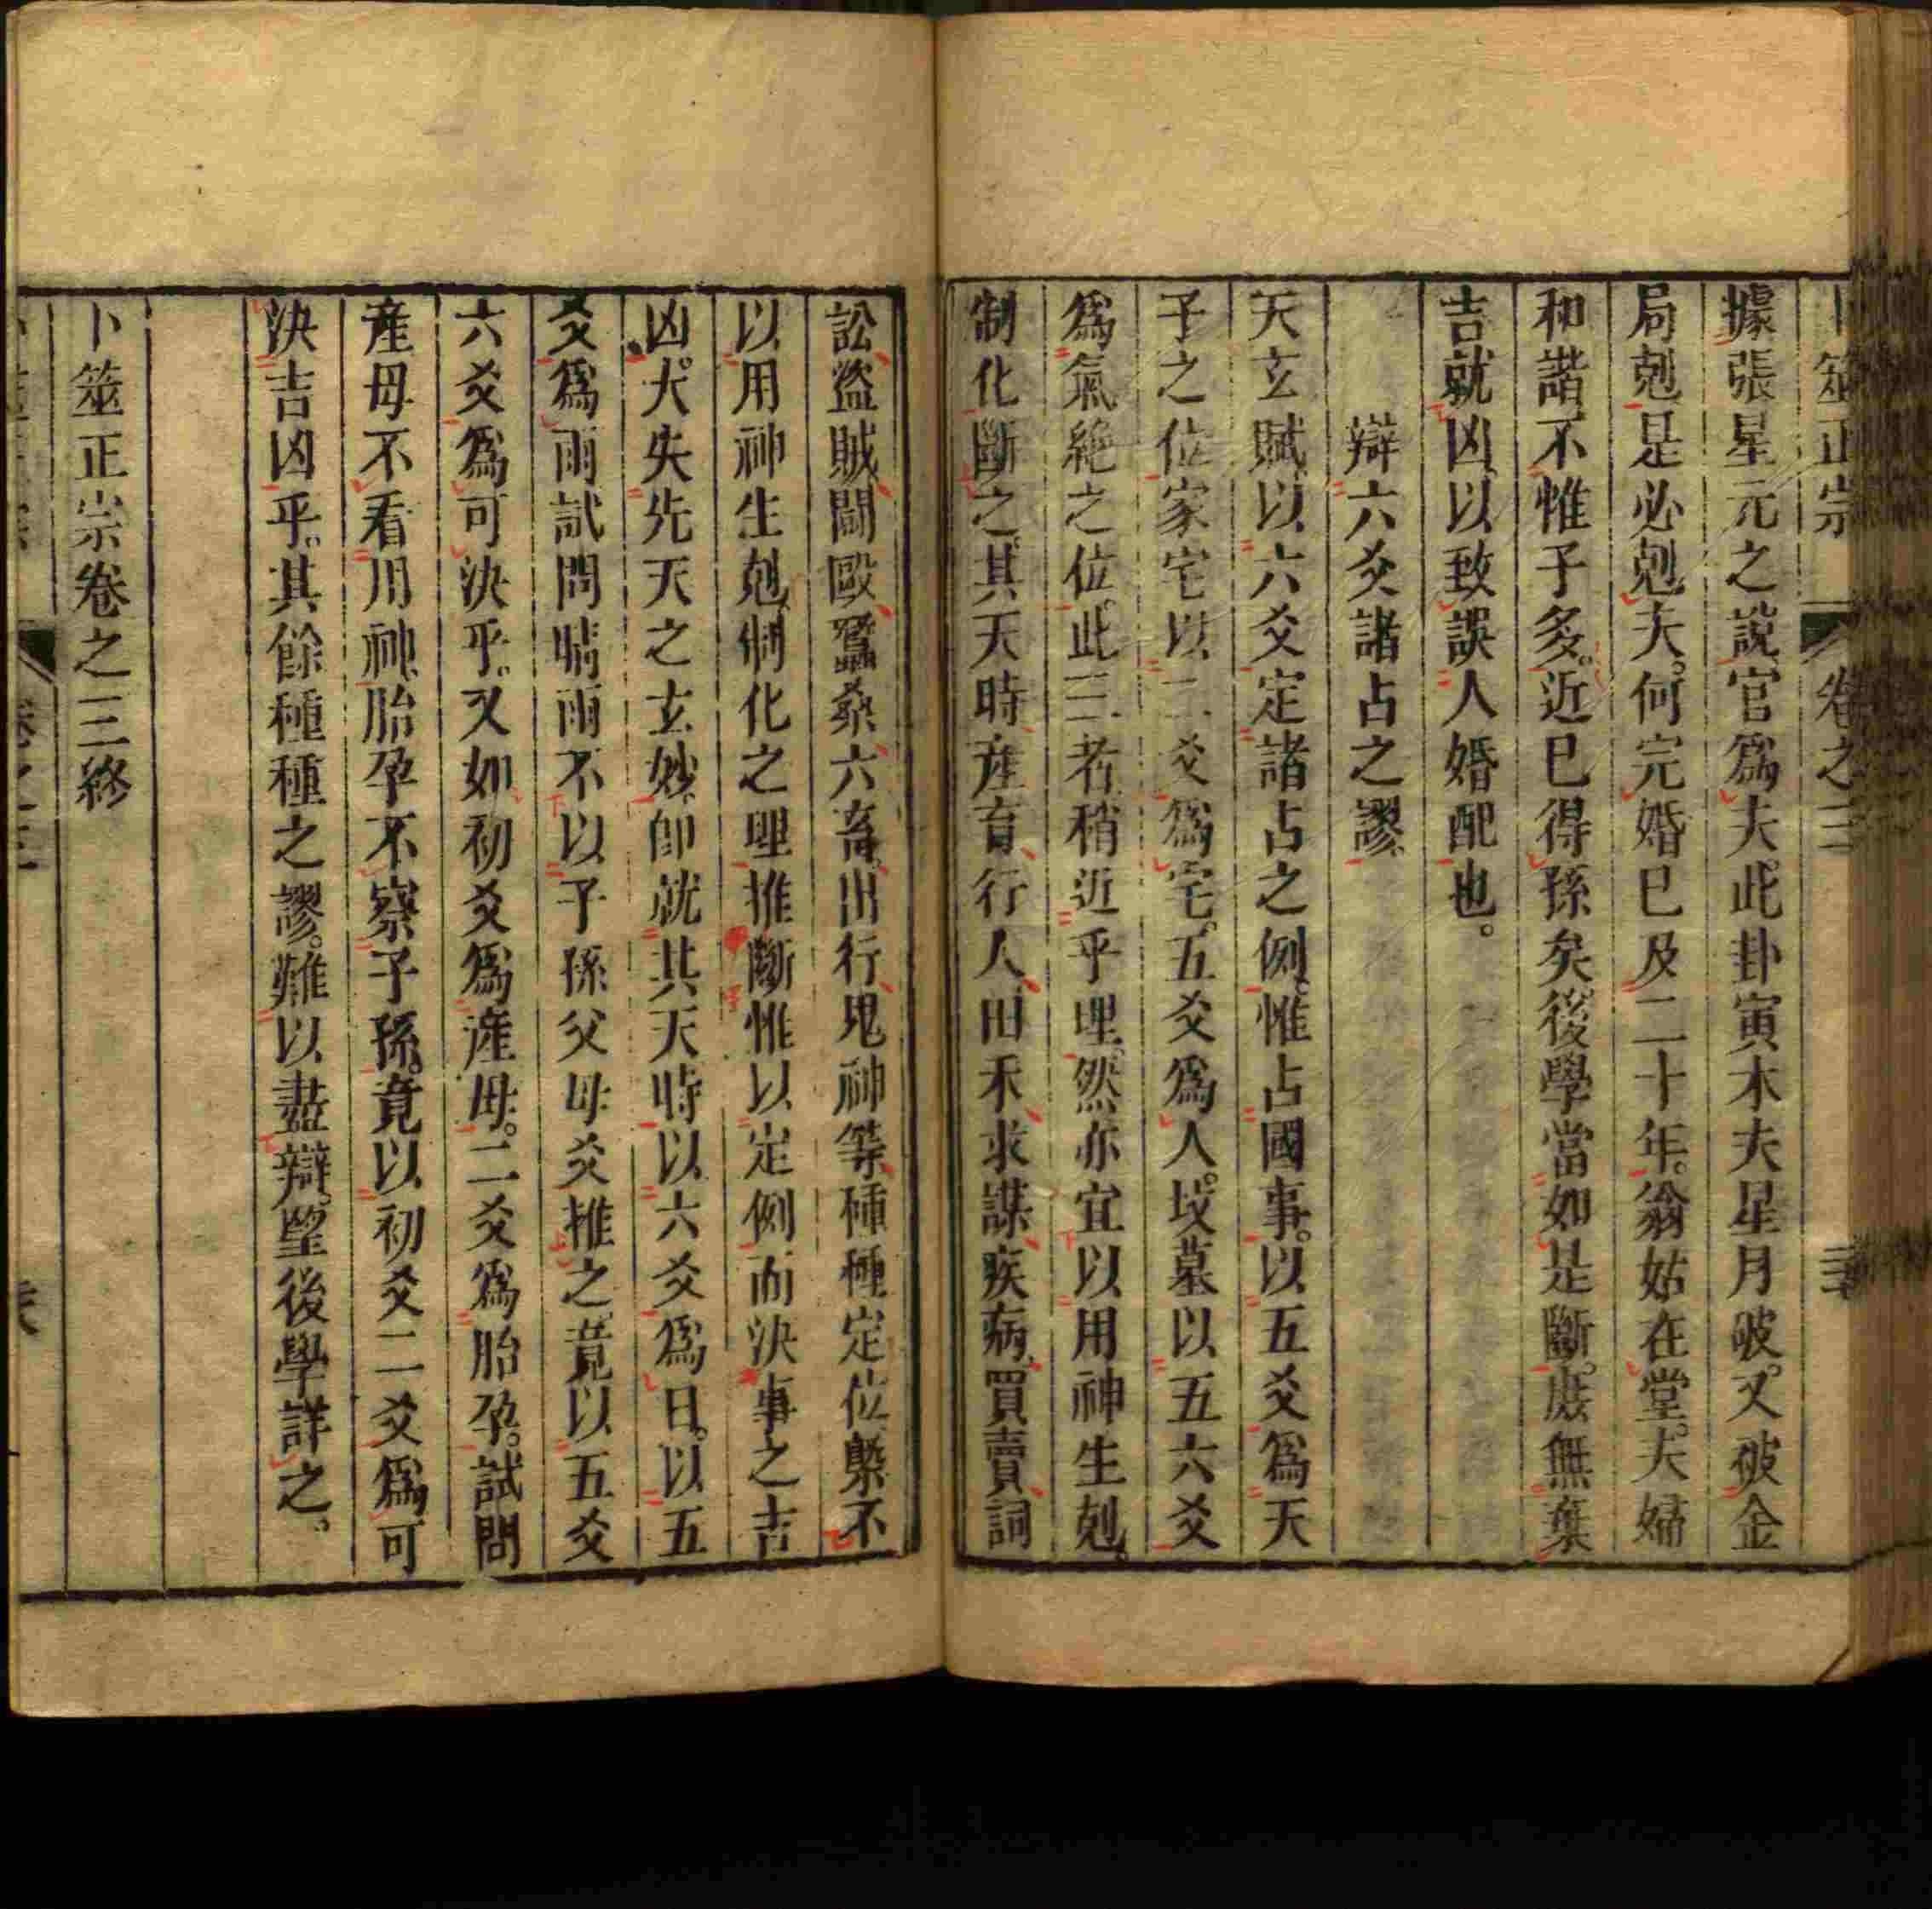 卜筮正宗 卷之三
據張星元之說官爲夫此卦寅木夫星月破又破金
局剋是必剋夫何完婚已及二十年翁姑在堂夫婦
和諧不惟子多近已得孫矣後學當如是斷庶無棄
吉就凶以致誤人婚配也
辯六爻諸占之謬
天玄賦以六爻定諸占之例惟占國事以五爻爲天
子之位家宅以二爻爲宅五爻爲人坟墓以五六爻
爲氣絶之位此三者稍近乎理然亦宜以用神生剋
制化斷之其天時產育行人田禾求謀疾病買賣詞
訟盜賊鬪毆蠶桒六畜出行鬼神等種種定位槩不
以用神生剋制化之理推斷惟以定例而決事之吉
凶大失先天之玄妙卽就其天時以六爻爲日以五
爻爲雨試問晴雨不以子孫父母爻推之竟以五爻
六爻爲可決乎又如初爻爲產母二爻爲胎孕試問
產母不看用神胎孕不察子孫竟以初爻二爻爲可
決吉凶乎其餘種種之謬難以盡辯望後學詳之
卜筮正宗卷之三終